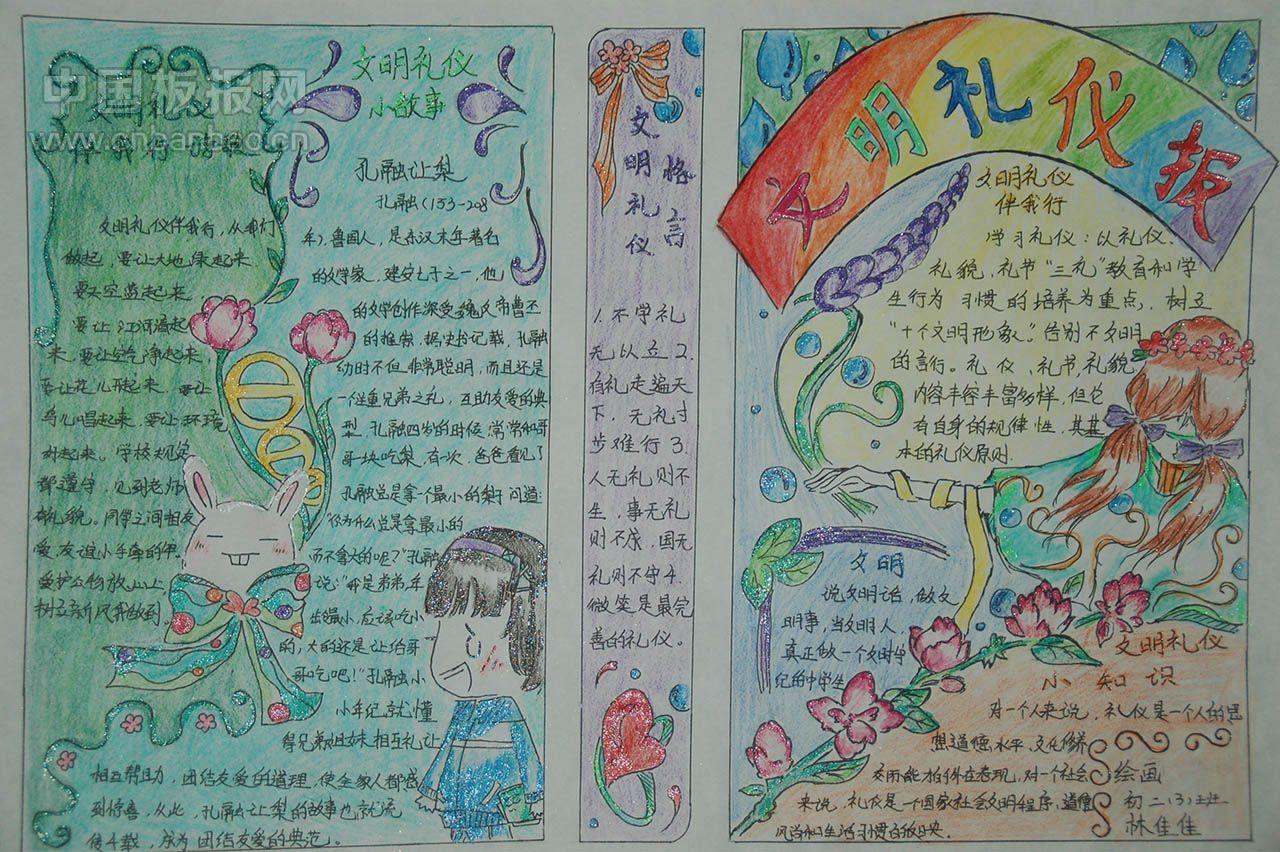 中国板报网
www.cnbanbao.cn
文明礼仪
伴我行
文明礼仪伴我行，从我们
做起，要让大地绿起来
要天空蓝起来
要让江河清起
来，要让空气净起来，
要让花儿开起来，要让
鸟儿唱起来，要让环境
树起来。学校规定
都遵守，见到老师
有礼貌。同学之间相友
爱，友谊小手牵的牢。
树立新风齐做到。
文明礼仪
小故事
孔融让梨
孔融（153-208
年），鲁国人，是东汉末年著名
的文学家，建安七子之一，他
的文学创作深受魏文帝曹丕
的推崇。据史书记载，孔融
幼时不但非常聪明，而且还是
一个注重兄弟之礼，互助友爱的典
型。孔融四岁的时候，常常和哥
哥一块吃梨，有一次，爸爸看见了
孔融总是拿一个最小的梨子问道：
“你为什么总是拿最小的
而不拿大的呢？”孔融
说：“我是弟弟，年
龄最小，应该吃小
的，大的还是让给哥
哥吃吧！”孔融小
小年纪就懂
得兄弟姐妹相互礼让
相互帮助，团结友爱的道理，使全家人都感
到惊喜，从此，孔融让梨的故事也就流
传千载，成为团结友爱的典范。
文明礼仪
格言
1.不学礼
无以立2.
有礼走遍天
下，无礼寸
步难行3.
人无礼则不
生，事无礼
则不成，国无
礼则不宁4.
微笑是最完
善的礼仪。
文明礼仪报
文明礼仪
伴我行
学习礼仪：以礼仪、
礼貌、礼节“三礼”教育和学
生行为习惯的培养为重点，树立
“十个文明形象”。告别不文明
的言行。礼仪、礼节、礼貌
内容丰容丰富多样，但它
有自身的规律性，其基
本的礼仪原则.
文明
说文明话，做文
明事，当文明人，
真正做一个文明守
纪的中学生
文明礼仪
小知识
对一个人来说，礼仪是一个人的思
想道德水平、文化修养
交际能力的外在表现，对一个社会
来说，礼仪是一个国家社会文明程序、道德
风尚和生活习惯的反映.
绘画
初二（3）班
林佳佳